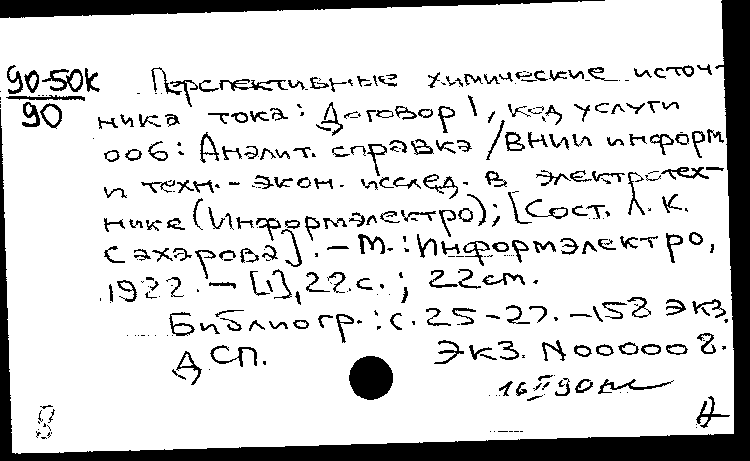 90-50к Перспективные химические источ-
90 ника тока: Договор 1, код услуги
006: Аналит. справка /ВНИИ информ.
и техн.-экон. исслед. в электротех-
нике (Информэлектро); [Сост. Л. К.
Сахарова]. - М.: Информэлектро,
1922. - [1], 22 с.; 22 см.
Библиогр.: с. 25-27. - 158 экз.
ДСП. Экз. N000008.
16 II 90
8 А